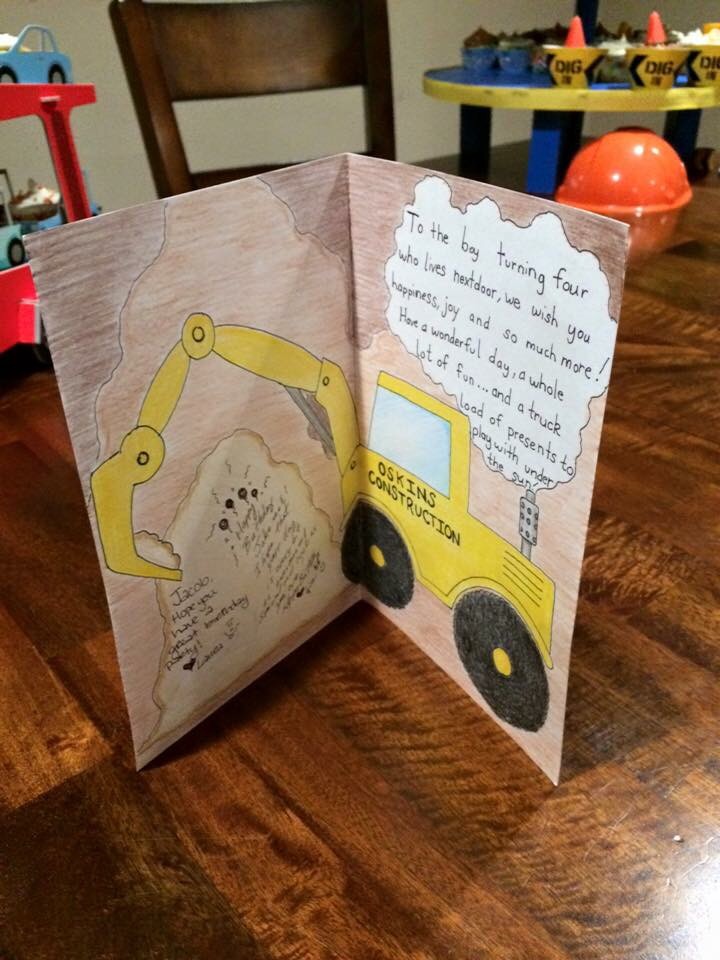 DIG
IN
DIG
IN
DIG
IN
To the boy turning four
who lives nextdoor, we wish you
happiness, joy and so much more!
Have a wonderful day, a whole
lot of fun...and a truck
load of presents to
play with under
the sun!
OSKINS
CONSTRUCTION
Happy
Birthday
Jacob,
Hope you
have a
great birthday
party!
Laura